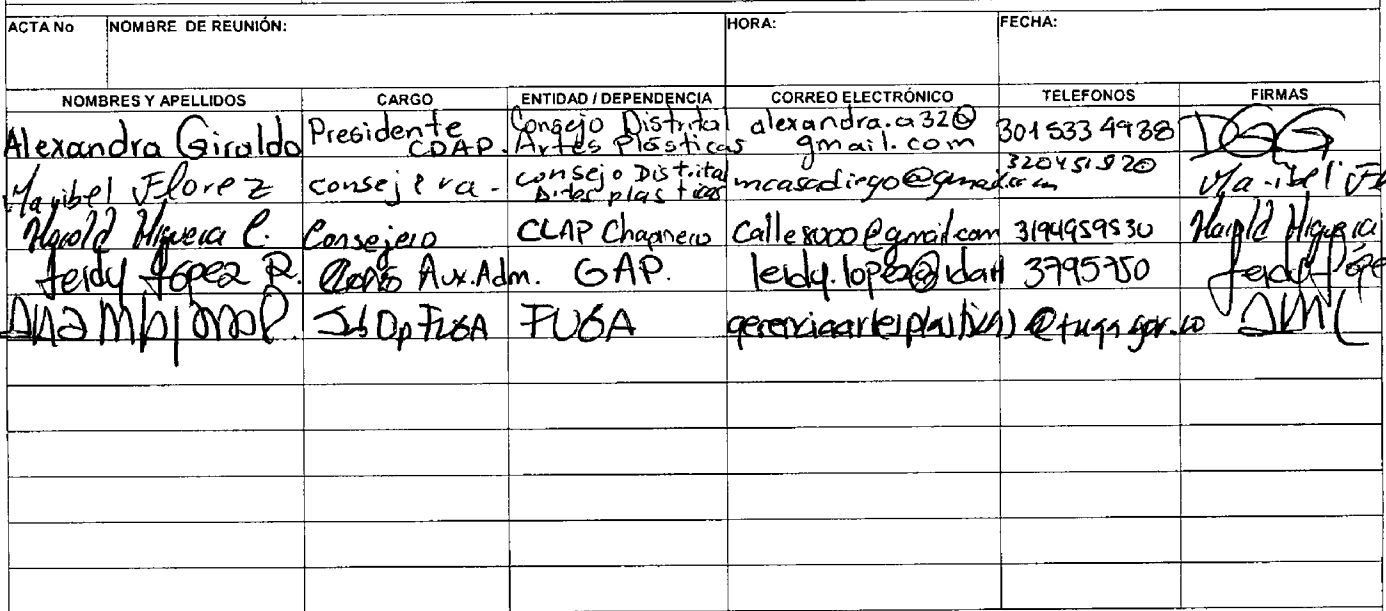 ACTA No NOMBRE DE REUNIÓN: HORA: FECHA:
NOMBRES Y APELLIDOS CARGO ENTIDAD / DEPENDENCIA CORREO ELECTRÓNICO TELEFONOS FIRMAS
Alexandra Giraldo Presidente CDAP. Consejo Distrital Artes Plásticas alexandra.a32@gmail.com 301 533 4938 DGG
Maribel Florez consejera. consejo Distrital Artes plasticas mcasadiego@gmail.com 320451920 Maribel
Harold Higuera C. Consejero CLAP Chapinero Calle8000@gmail.com 3194959530 Harold Higuera
Leidy López R. Aux. Adm. GAP. leidy.lopez@idart 3795750 Leidy
FUGA FUGA